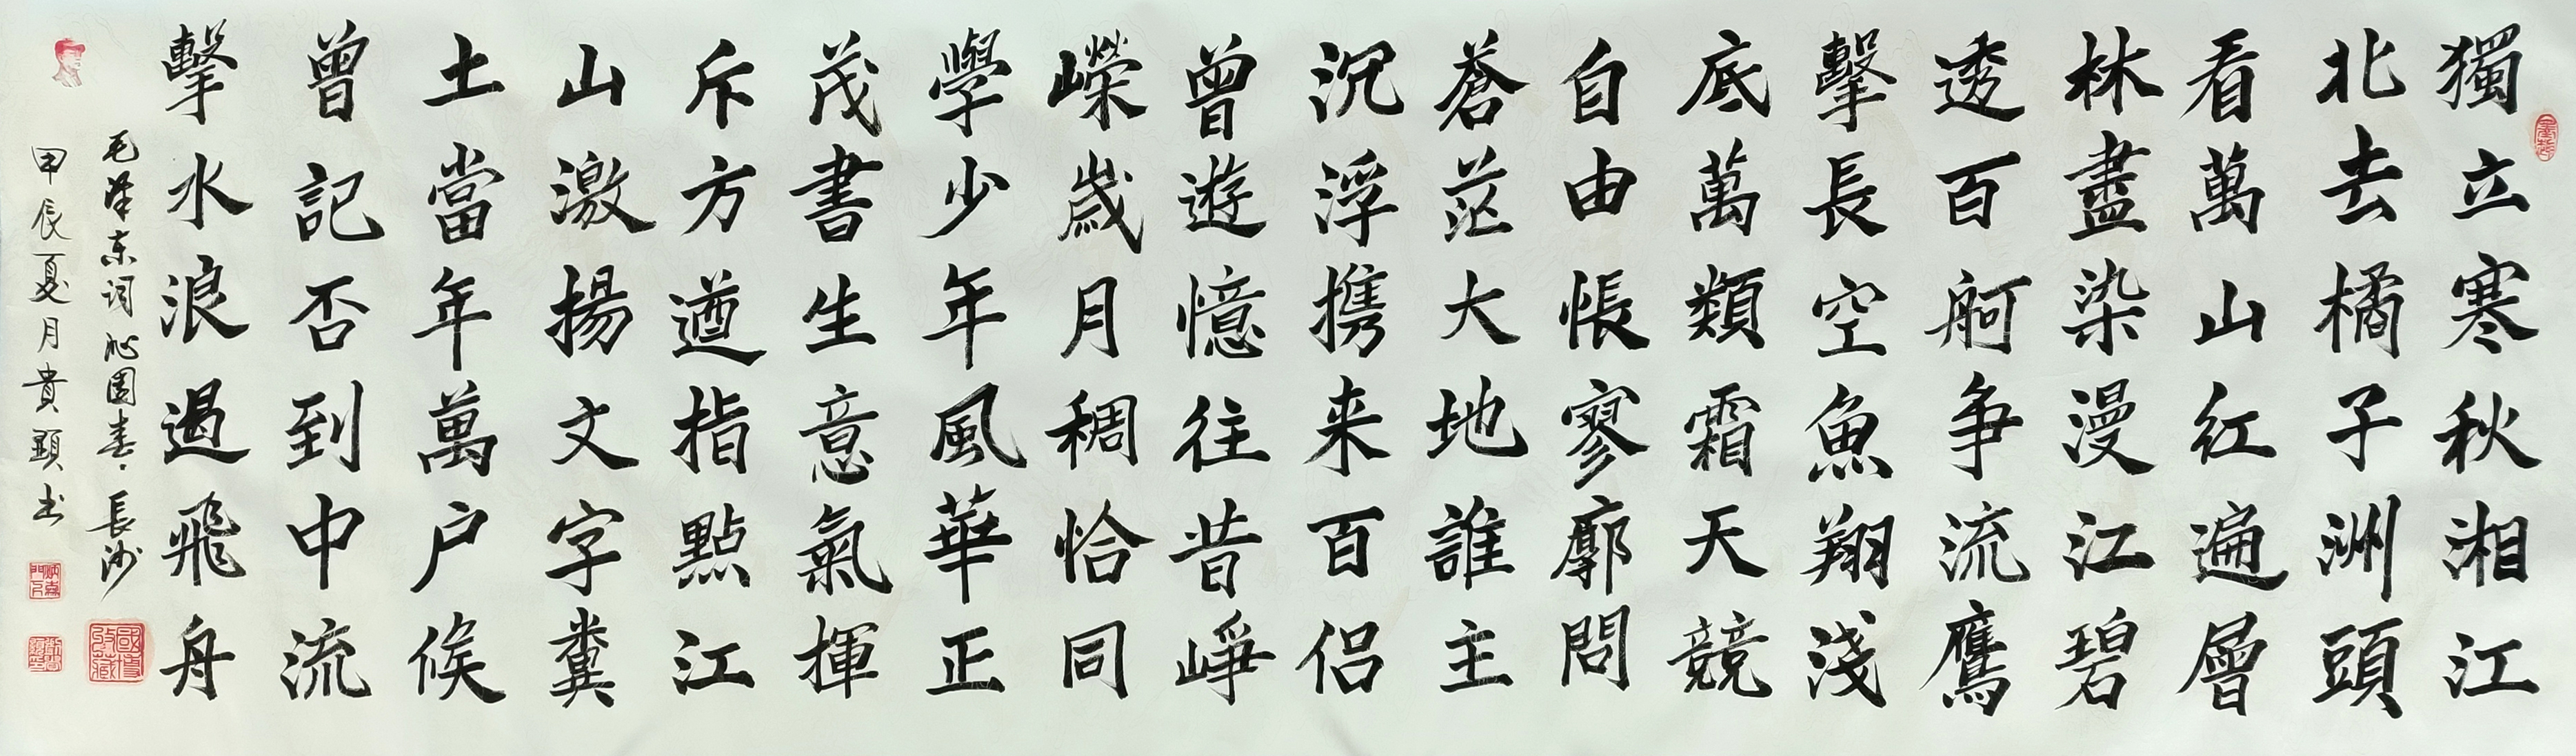 獨立寒秋湘江
北去橘子洲頭
看萬山紅遍層
林盡染漫江碧
透百舸争流鷹
擊長空魚翔淺
底萬類霜天競
自由悵寥廓問
蒼茫大地誰主
沉浮携来百侣
曾遊憶往昔崢
嶸歲月稠恰同
學少年風華正
茂書生意氣揮
斥方遒指點江
山激揚文字糞
土當年萬户侯
曾記否到中流
擊水浪遏飛舟
毛澤东词沁園春·長沙
甲辰夏月貴顕书